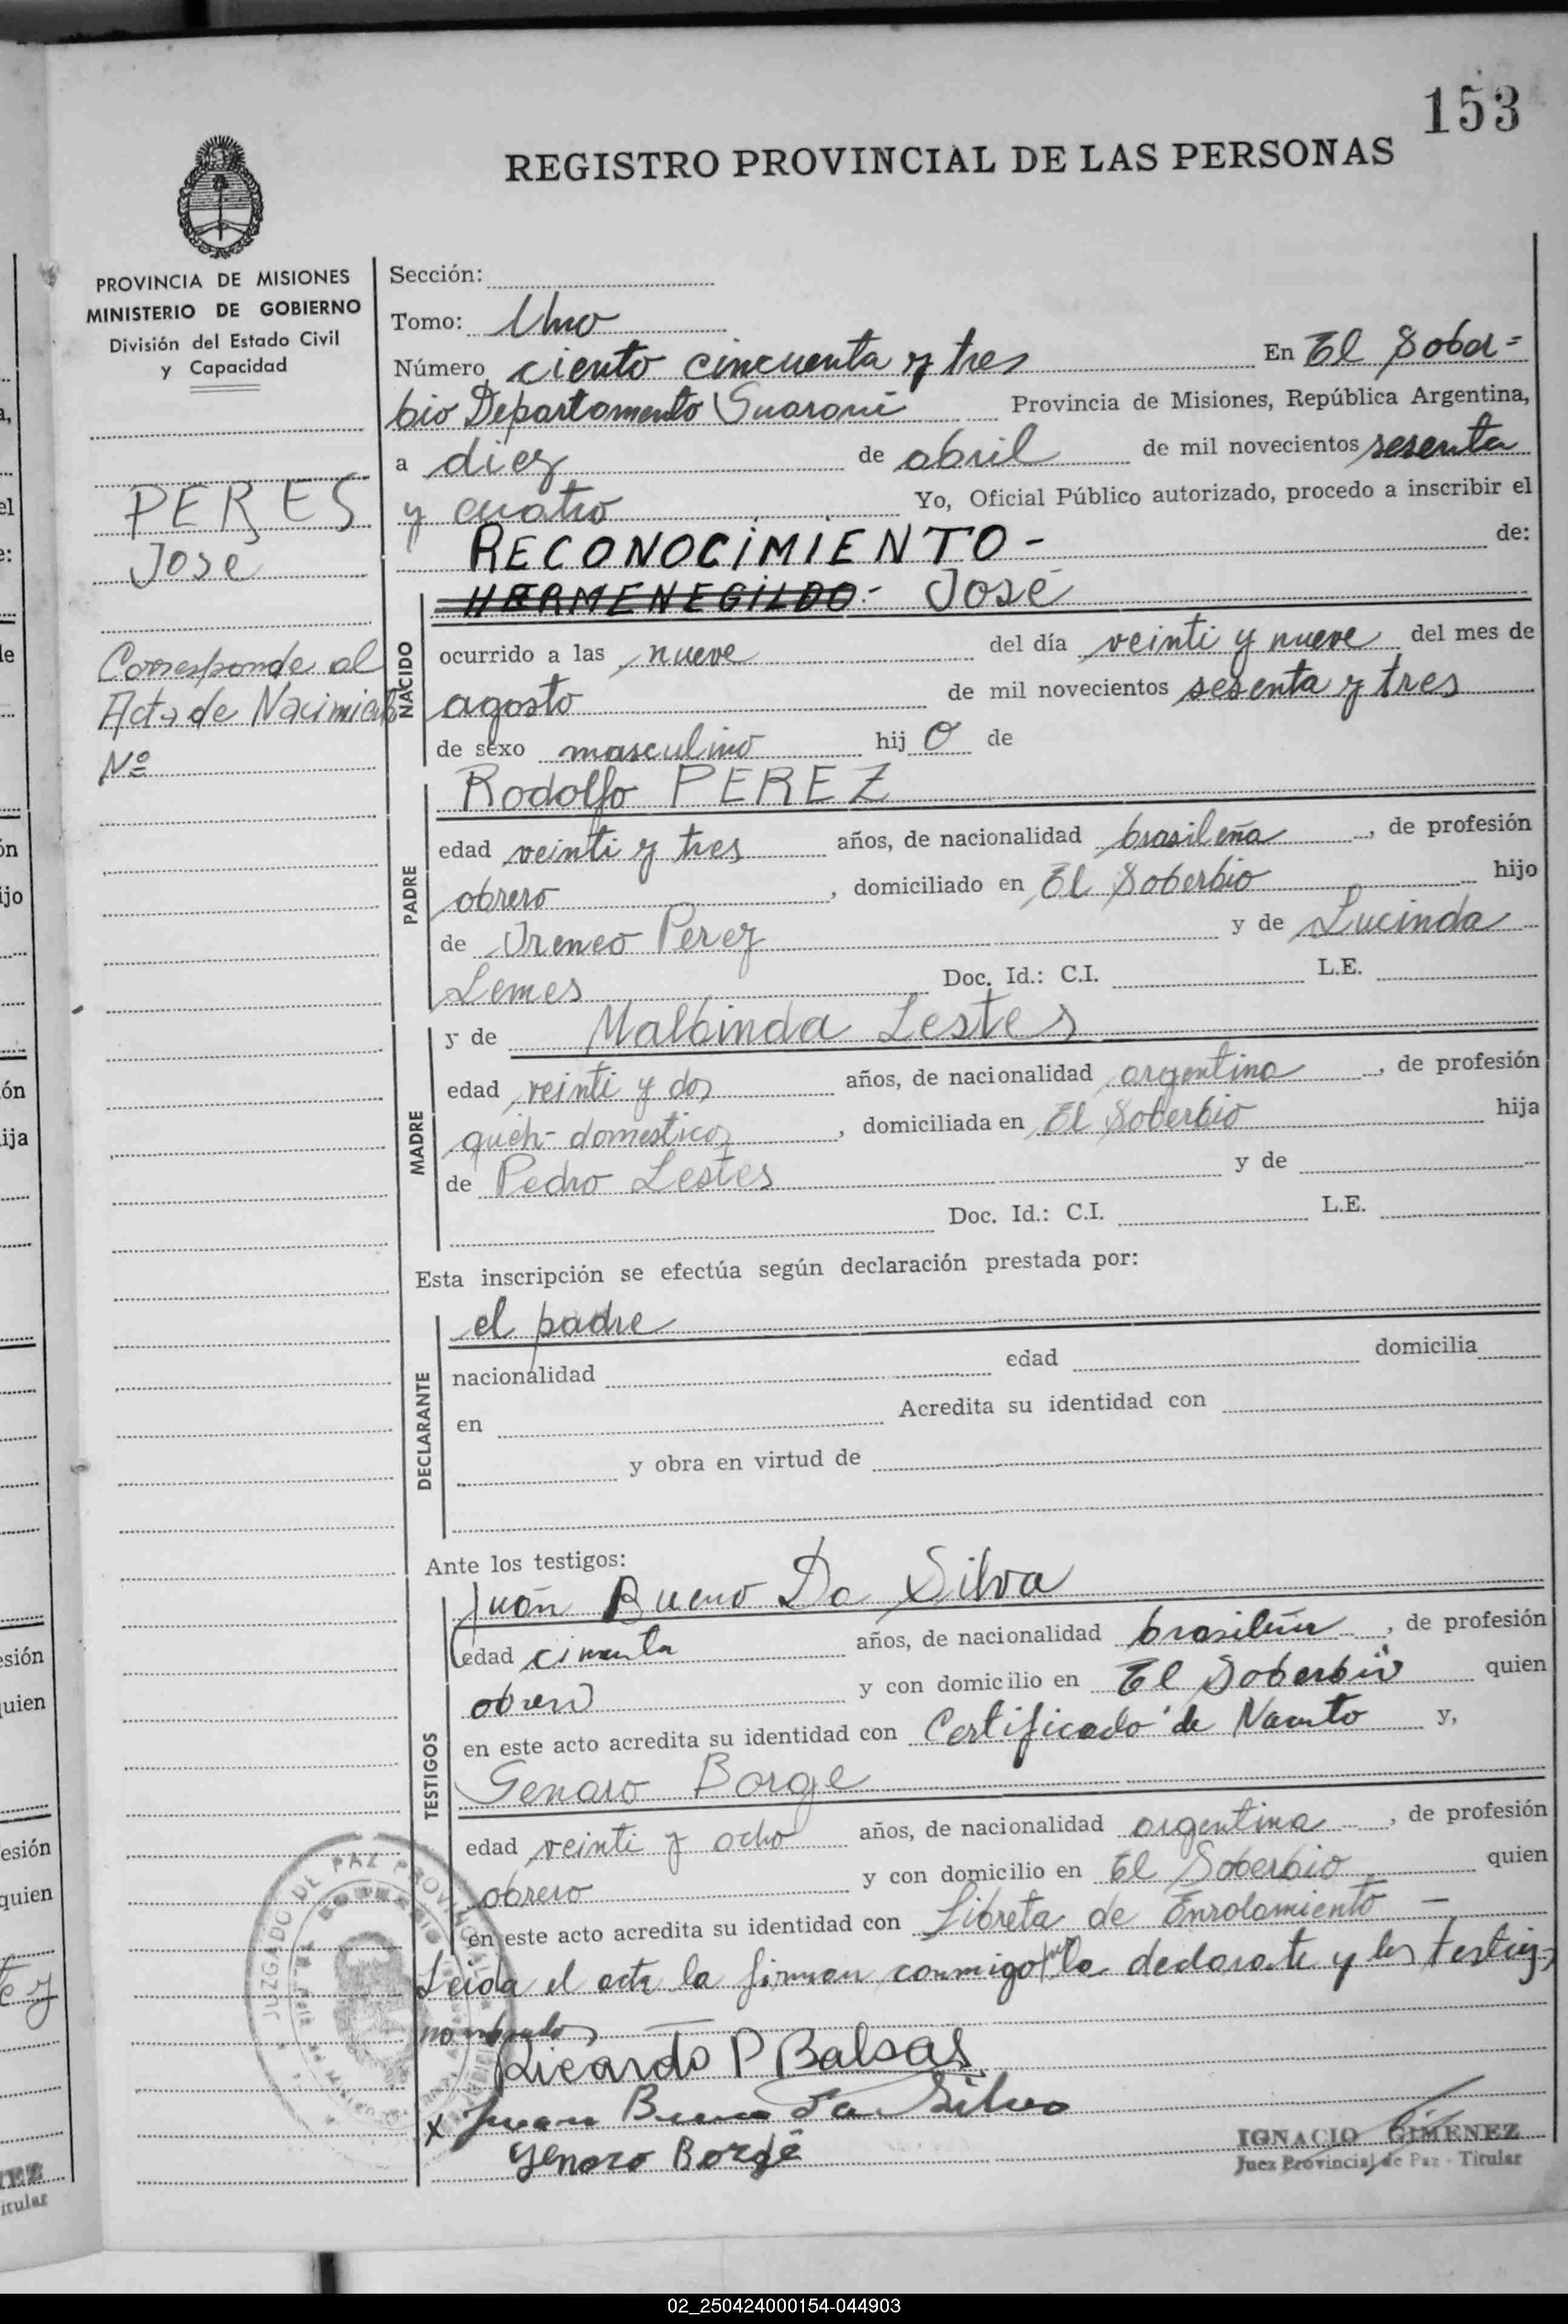 153
REGISTRO PROVINCIAL DE LAS PERSONAS
PROVINCIA DE MISIONES
MINISTERIO DE GOBIERNO
División del Estado Civil
y Capacidad
PERES
José
Corresponde al
Acta de Nacimiento
Nº
Sección:
Tomo: Uno
Número ciento cincuenta y tres En El Sober=
bio Departamento Guaraní Provincia de Misiones, República Argentina,
a diez de abril de mil novecientos sesenta
y cuatro Yo, Oficial Público autorizado, procedo a inscribir el
RECONOCIMIENTO - de:
NACIDO
HERMENEGILDO.- José
ocurrido a las nueve del día veinti y nueve del mes de
agosto de mil novecientos sesenta y tres
de sexo masculino hij o de
PADRE
Rodolfo PEREZ
edad veinti y tres años, de nacionalidad brasileña, de profesión
obrero, domiciliado en El Soberbio hijo
de Ireneo Perez y de Lucinda
Lemes Doc. Id.: C.I. L.E.
MADRE
y de Malbinda Lestes
edad veinti y dos años, de nacionalidad argentina, de profesión
queh- domesticos, domiciliada en El Soberbio hija
de Pedro Lestes y de
Doc. Id.: C.I. L.E.
Esta inscripción se efectúa según declaración prestada por:
DECLARANTE
el padre
nacionalidad edad domicilia
en Acredita su identidad con
y obra en virtud de
Ante los testigos:
TESTIGOS
Juán Bueno Da Silva
edad años, de nacionalidad brasileña, de profesión
obrero y con domicilio en El Soberbio quien
en este acto acredita su identidad con Certificado de Nacnto y,
Genaro Borge
edad veinti y ocho años, de nacionalidad argentina, de profesión
obrero y con domicilio en El Soberbio quien
en este acto acredita su identidad con Libreta de Enrolamiento -
Leida el acta la firman conmigo la declarante y los testigos
nombrados
Ricardo P Balsas
x Juan Bueno Da Silva
Genaro Borge
JUZGADO DE PAZ PROVINCIAL
IGNACIO GIMENEZ
Juez Provincial de Paz - Titular
02_250424000154-044903